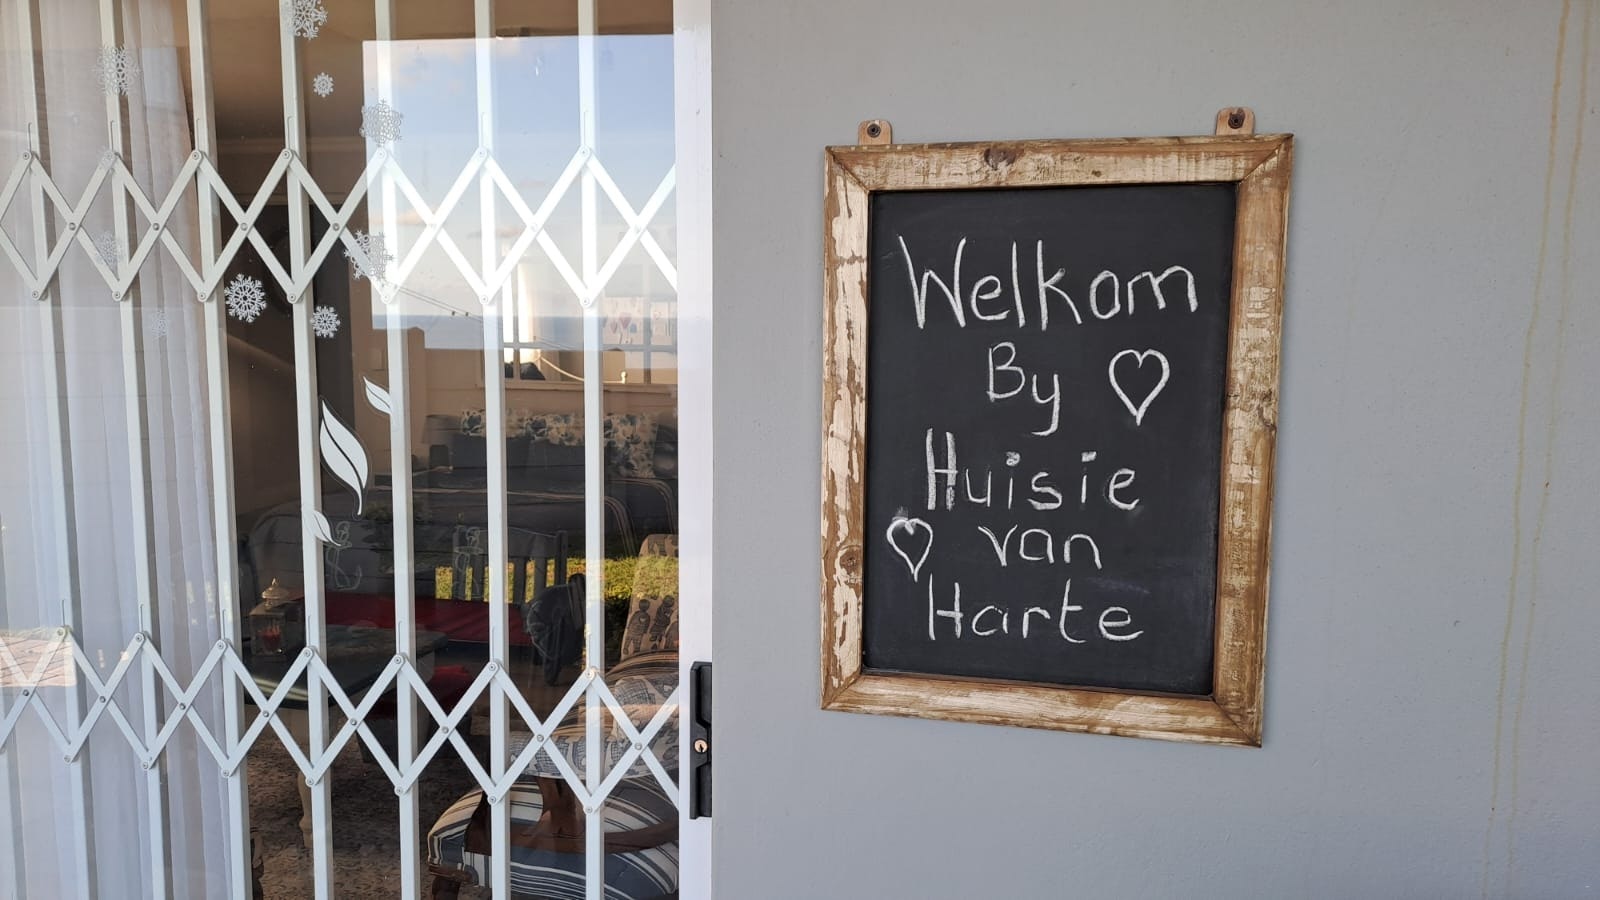 Welkom
By
Huisie
van
Harte